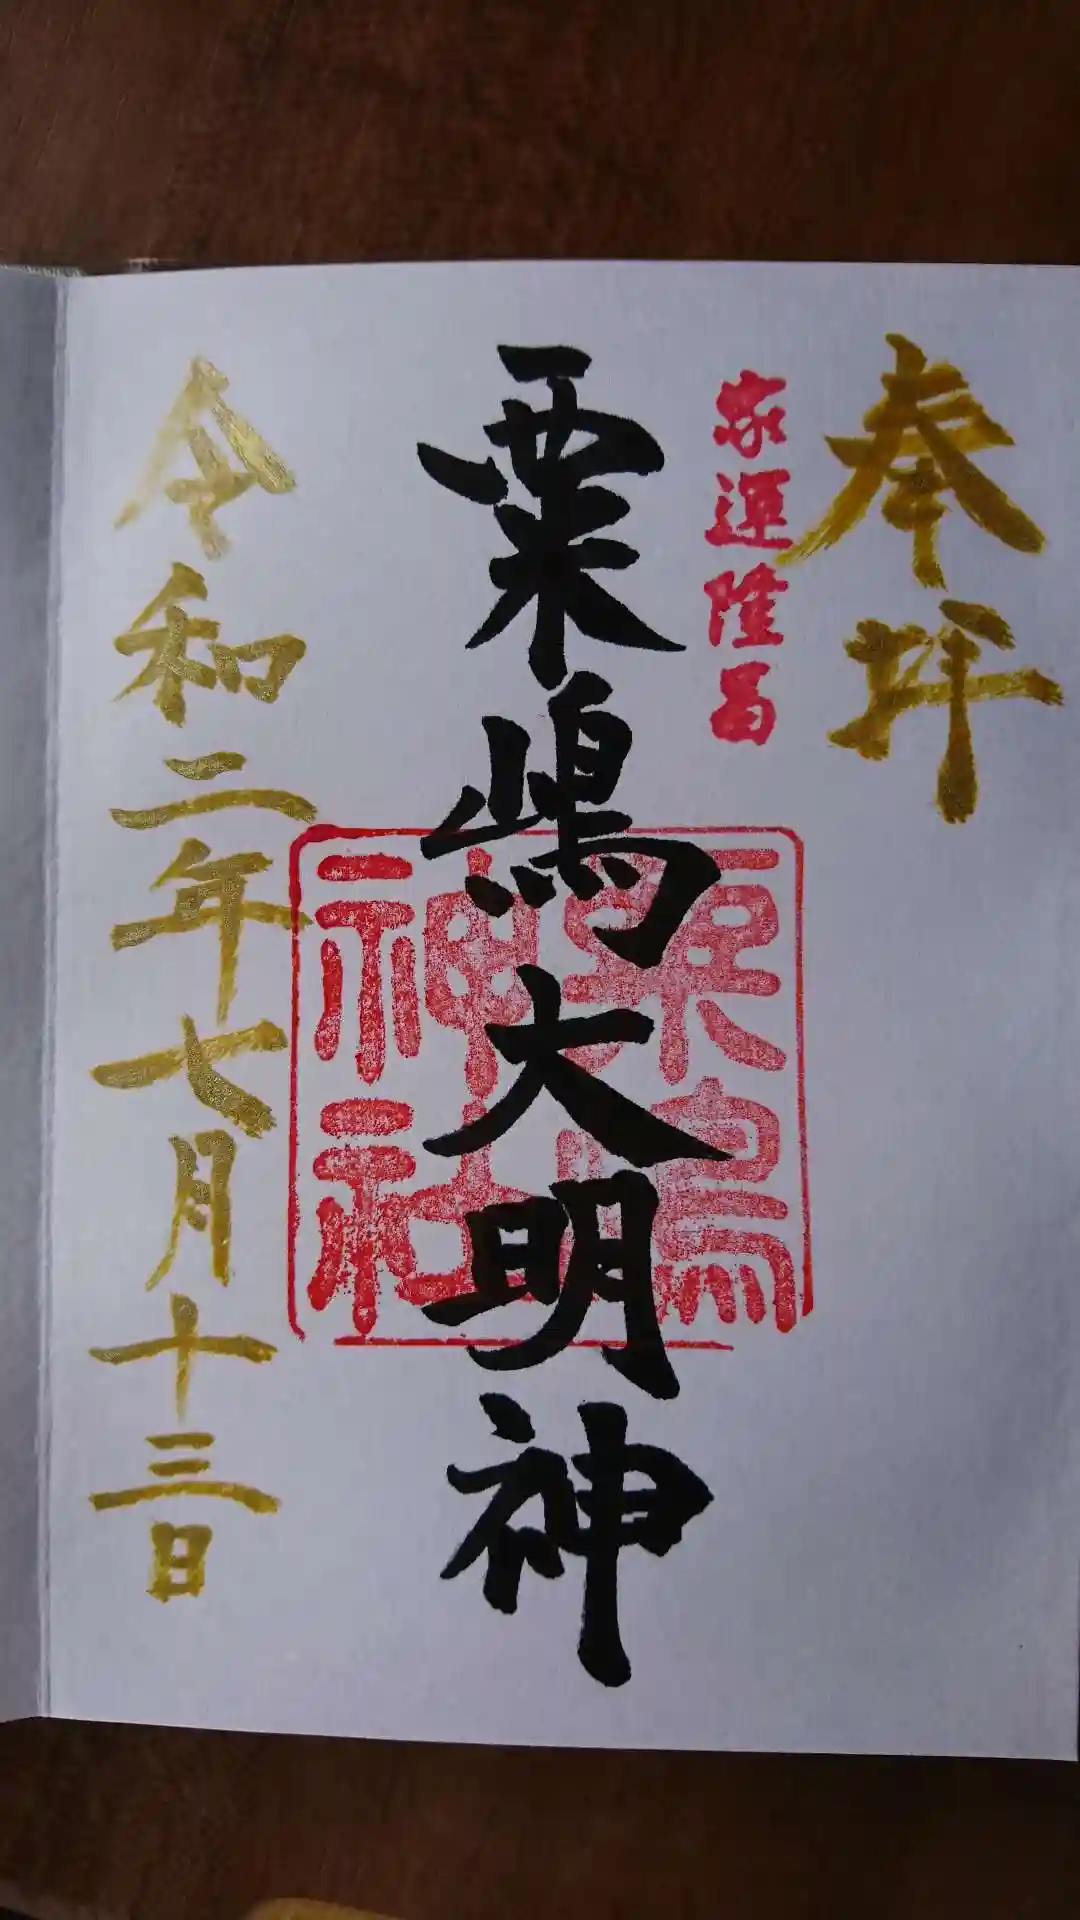 奉拝
家運隆昌
粟嶋大明神
粟嶋神社
令和二年七月十三日